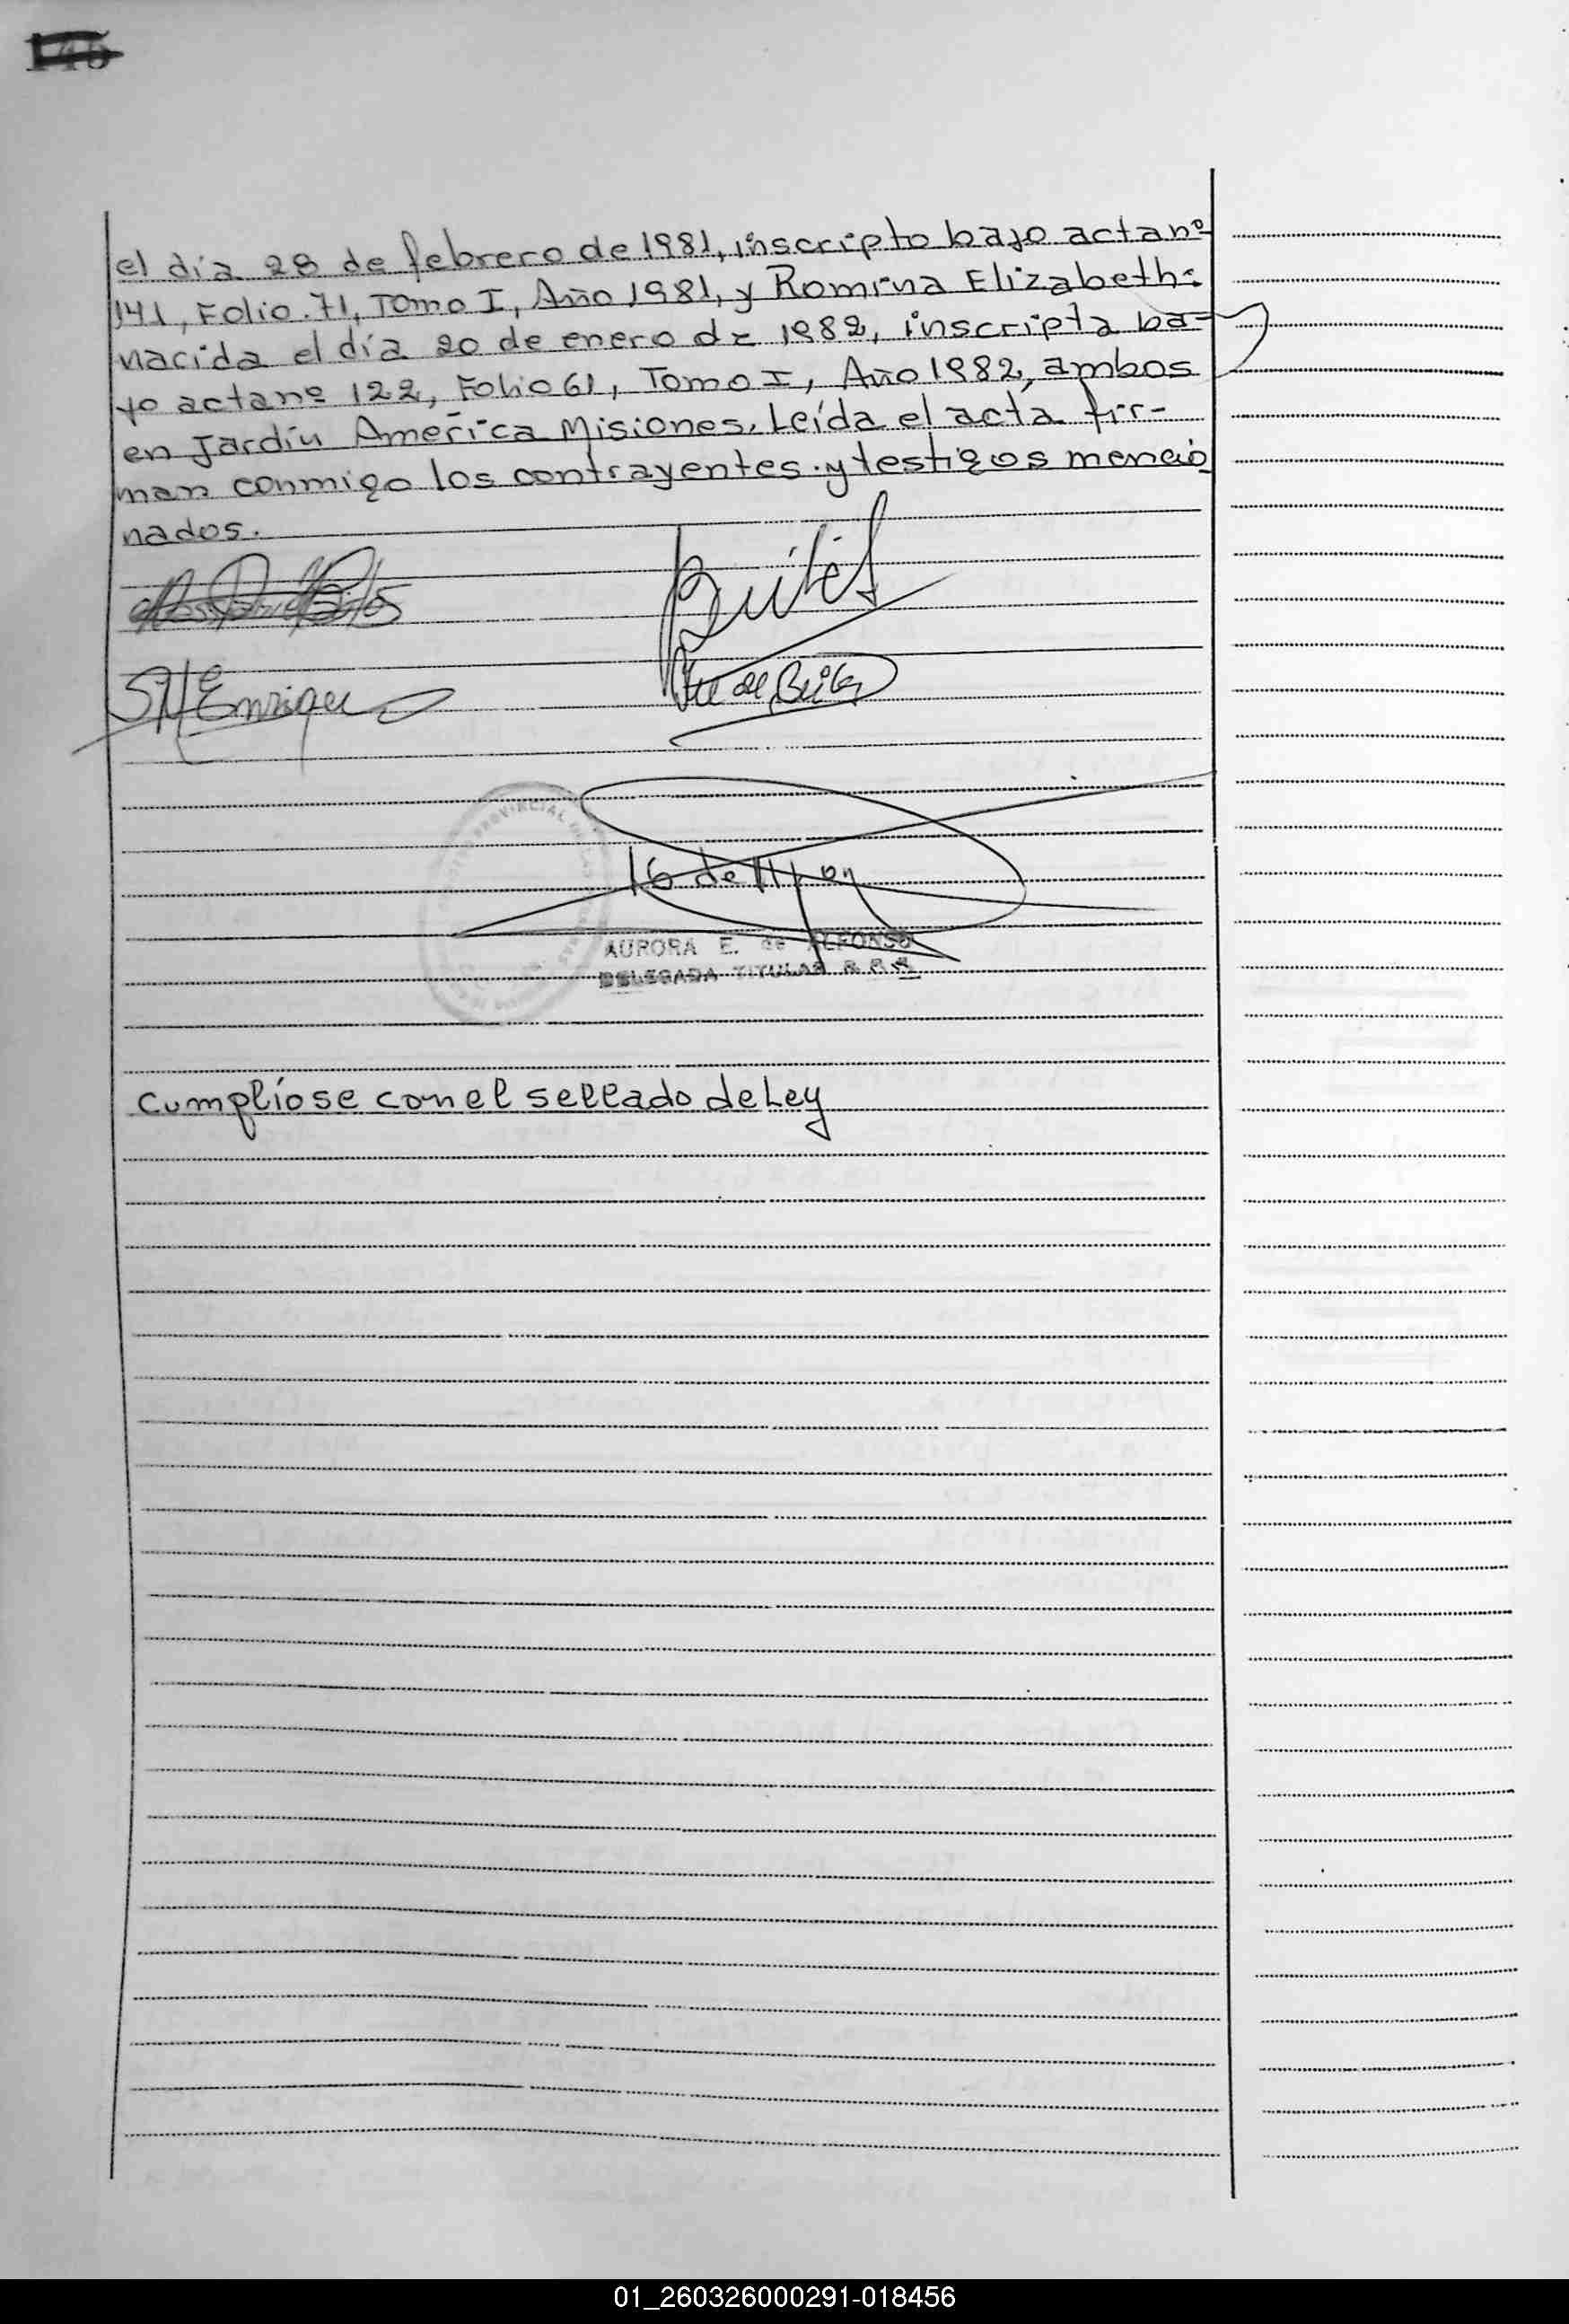 145
el día 28 de febrero de 1981, inscripto bajo acta nº
141, Folio. 71, Tomo I, Año 1981, y Romina Elizabeth:
nacida el día 20 de enero de 1982, inscripta ba-
jo acta nº 122, Folio 61, Tomo I, Año 1982, ambos
en Jardín América Misiones. Leída el acta fir-
man conmigo los contrayentes. y testigos mencio
nados.
SM Enrique
de Britez
PROVINCIAL DE LAS
AURORA E. de ALFONSO
DELEGADA TITULAR R. P. P.
Cumplíose con el sellado de Ley
01_260326000291-018456